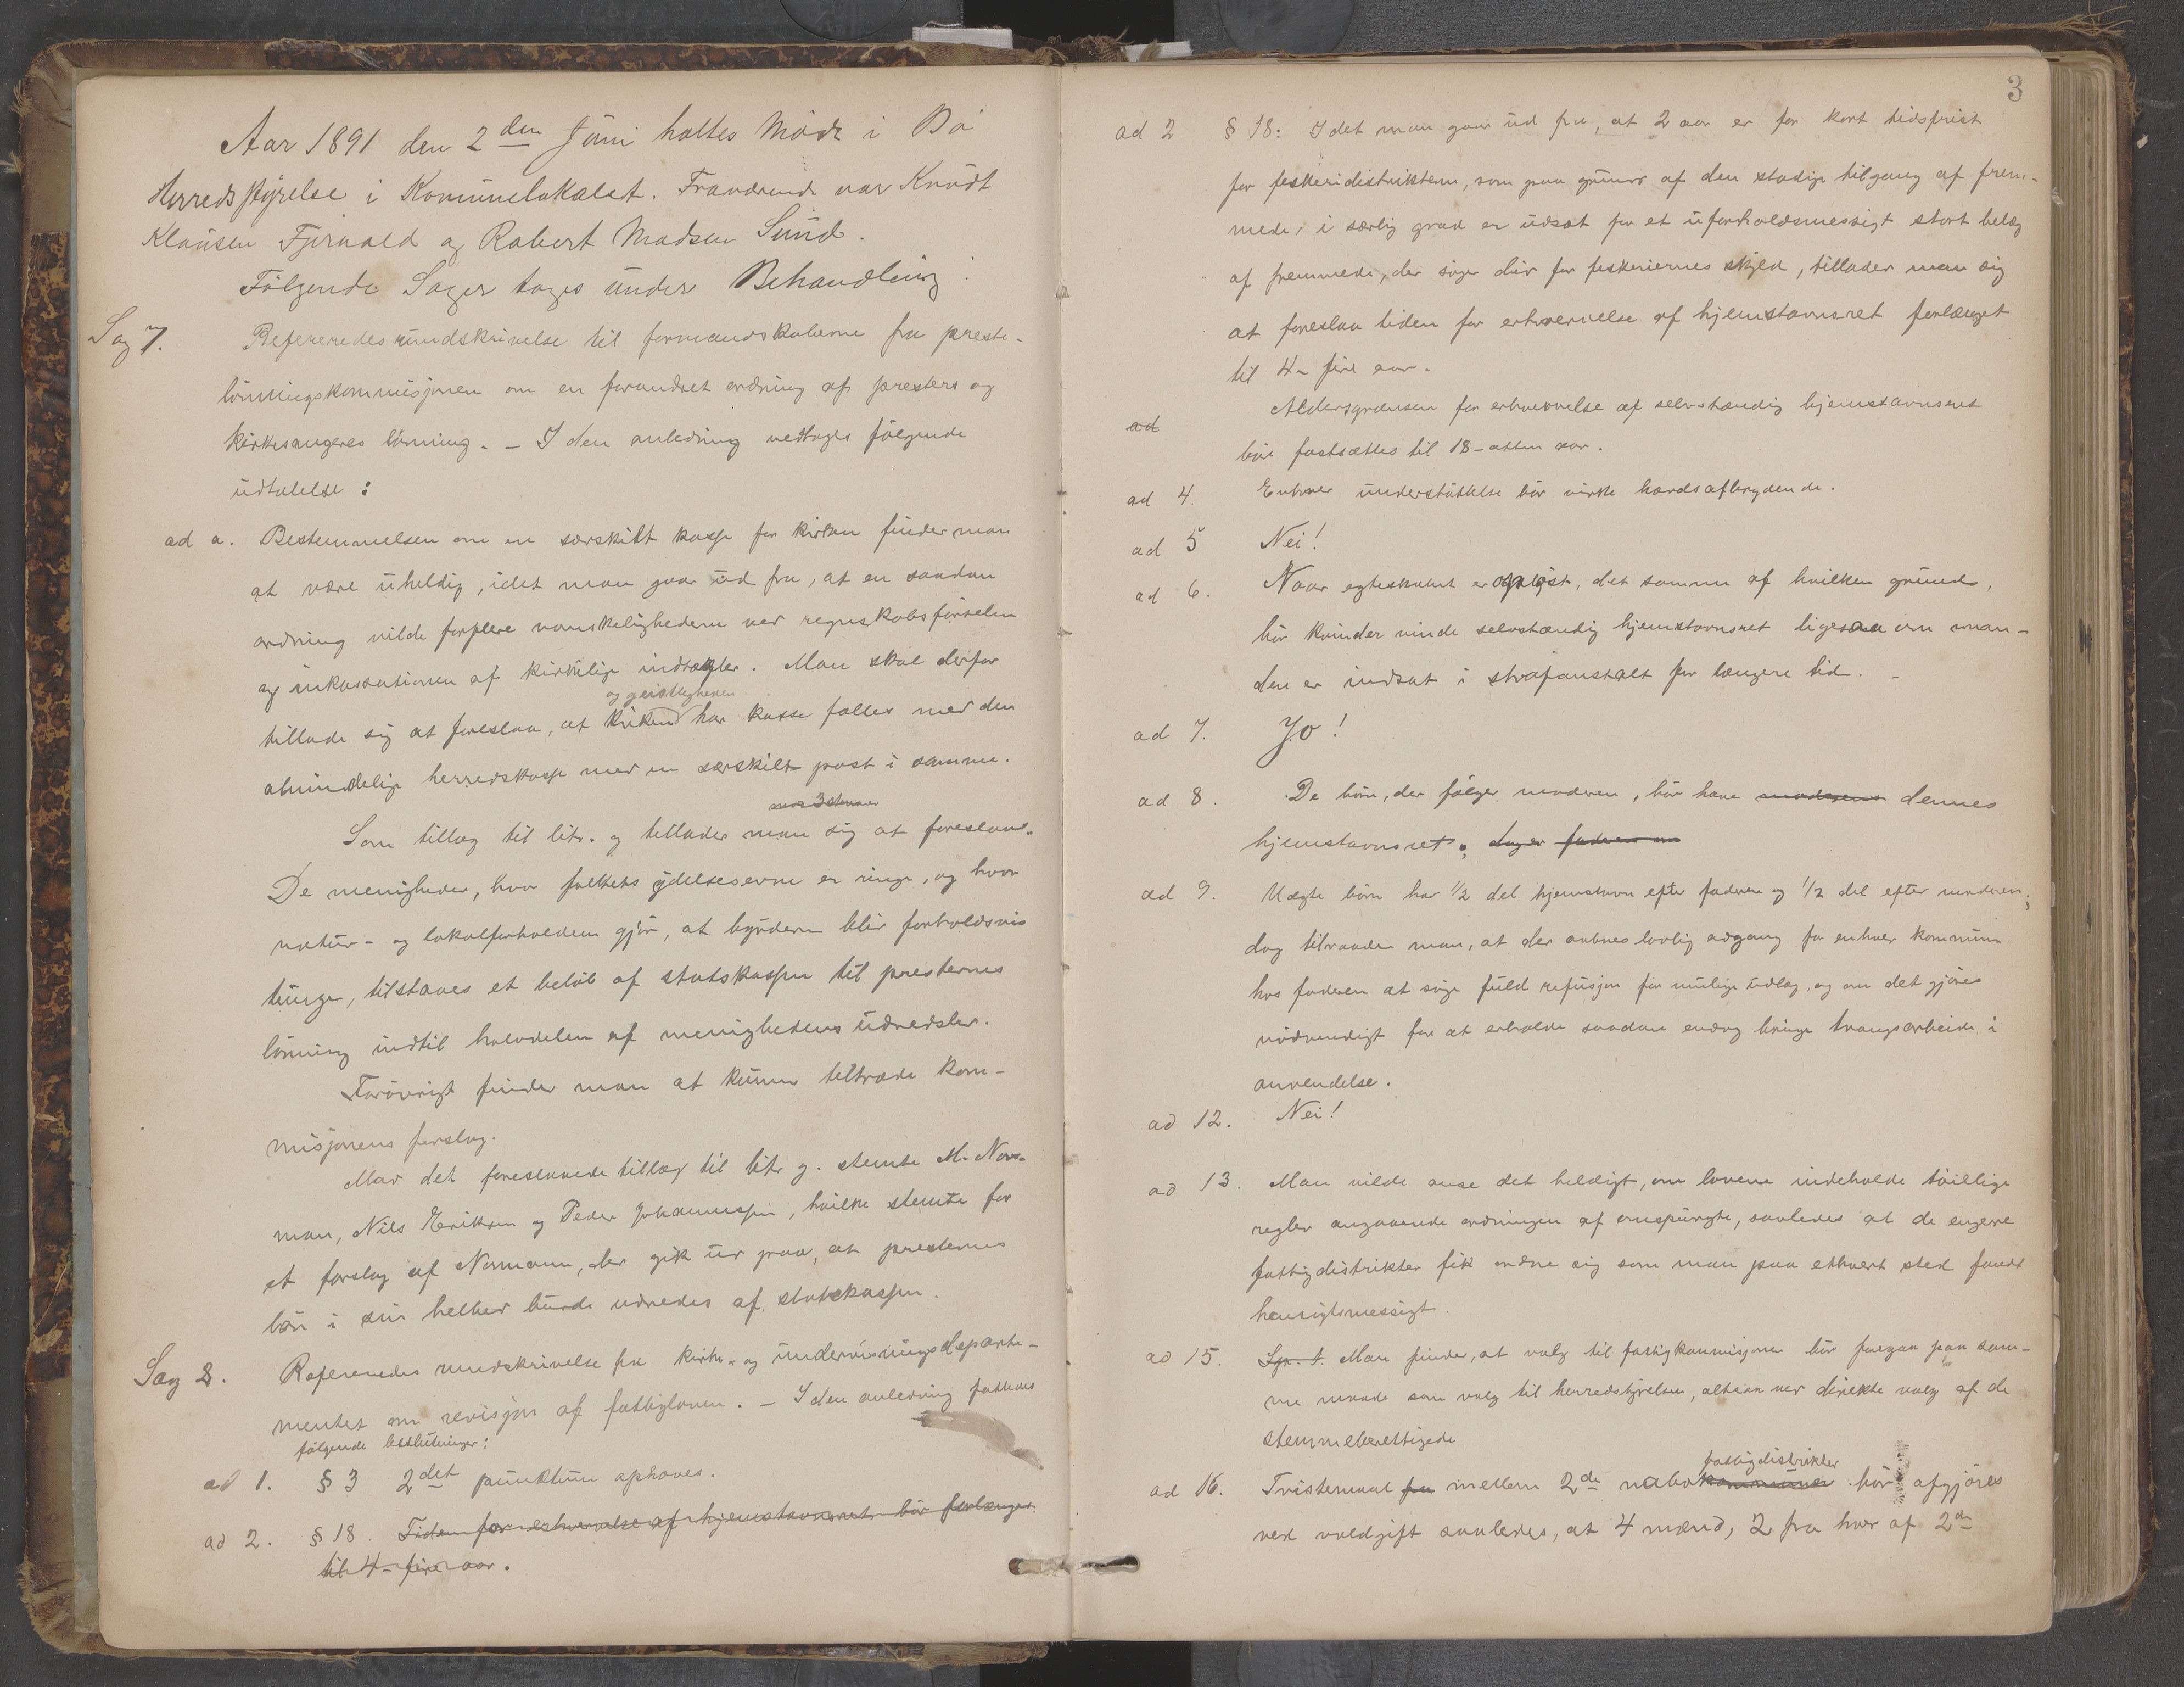 Aar 1891 den 2den Juni holtes Möde i Bö
Herredsstyrelse i Komünelokalet. Fraværende var Knüdt
Klaüsen Fjærvold og Robert Madsen Sünd.
Følgende Sager toges ünder Behandling:
Sag 7. Refereredes rundskrivelse til formandskaberne fra preste-
lönningskommisjonen om en forandret ordning af presters og
kirkesangeres lönning. – I den anledning vedtoges fölgende
üdtalelse:
ad a. Bestemmelsen om en særskilt kasse for kirken finder man
at være üheldig, idet man gaar üd fra, at en saadan
ordning vilde forplere vanskelighederne ved regnskabsförselen
og inkassationen af kirkelige indtægter. Man skal derfor
og geistligheden
tillade sig at foreslaa, at kirken har kasse fælles med den
almindelige herredskasse med en særskilt post i samme.
mod 3 stemmer
Som tillæg til litr. g tillader man sig at foreslaa.
De menigheder, hvor folkets ydelsesevne er ringe, og hvor
natür- og lokalforholdene gjör, at byrderne blir forholdsvis
tünge, tilstaaes et belöb af statskassen til presternes
lönning indtil halvdelen af menighedens üdredsler.
Forövrigt finder man at künne tiltræde kom-
misjonens forslag.
Mod det foreslaaede tillæg til litr g. stemte M. Nor-
man, Nils Eriksen og Peder Johannessen, hvilke stemte for
et forslag af Normann, der gik üd paa, at presternes
lön i sin helhed bürde udredes af statskassen.
Sag 8. Refereredes rundskrivelse fra kirke- og ündervisningsdeparte-
mentet om revisjon af fattigloven. – I den anledning fattedes
fölgende beslütninger:
ad 1. § 3 2det pünktüm ophæves.
ad 2. § 18. Tiden for erhvervelse af hjemstavnsret bör forlænges
til 4 – fire aar.
3
ad 2 § 18: Idet man gaar üd fra, at 2 aar er for kort tidsfrist
for feskeridistrikterne, som paa gründ af den stadige tilgang af frem-
mede, i særlig grad er üdsat for et üforholdsmessigt stort belæg
af fremmede, der söger did for feskeriernes skyld, tillader man sig
at foreslaa tiden for erhvervelse af hjemstavnsret forlænget
til 4 – fire aar.
ad Aldersgrænsen for erhvervelse af selvstændig hjemstavnsret
bör fastsættes til 18 – atten aar.
ad 4. Enhver ünderstöttelse bör virke hævdsafbrydende.
ad 5 Nei!
ad 6. Naar egteskabet er oplöst, det samme af hvilken gründ,
bör kvinder vinde selvstændig hjemstavnsret ligesaa om man-
den er indsat i strafanstalt for længere tid. –
ad 7. Jo!
ad 8. De börn, der fölger moderen, bör have moderens dennes
hjemstavnsret. dog er faderen
ad 9. Uægte börn har 1/2 del hjemstavn efter faderen og 1/2 del efter moderen;
dog tilraader man, at der aabnes lovlig adgang for enhver kommüne
hos faderen at söge füld refüsjon for mülige üdlæg, og om det gjöres
nödvendigt for at erholde saadan endog bringe tvangsarbeide i
anvendelse.
ad 12. Nei!
ad 13. Man vilde anse det heldigt, om lovene indeholde töielige
regler angaaende ordningen af omspürgte, saaledes at de engere
fattigdistrikter fik ordne sig som man paa ethvert sted fandt
hensigtsmessigt.
ad 15. Man finder, at valg til fattigkommisjonen bör foregaa paa sam-
me maade som valg til herredstyrelsen, altsaa ved direkte valg af de
stemmeberettigede
fattigdistrikter
ad 16. Tvistemaal fra mellem 2de nabokommüner bör afgjöres
ved voldgift saaledes, at 4 mænd, 2 fra hver af 2de